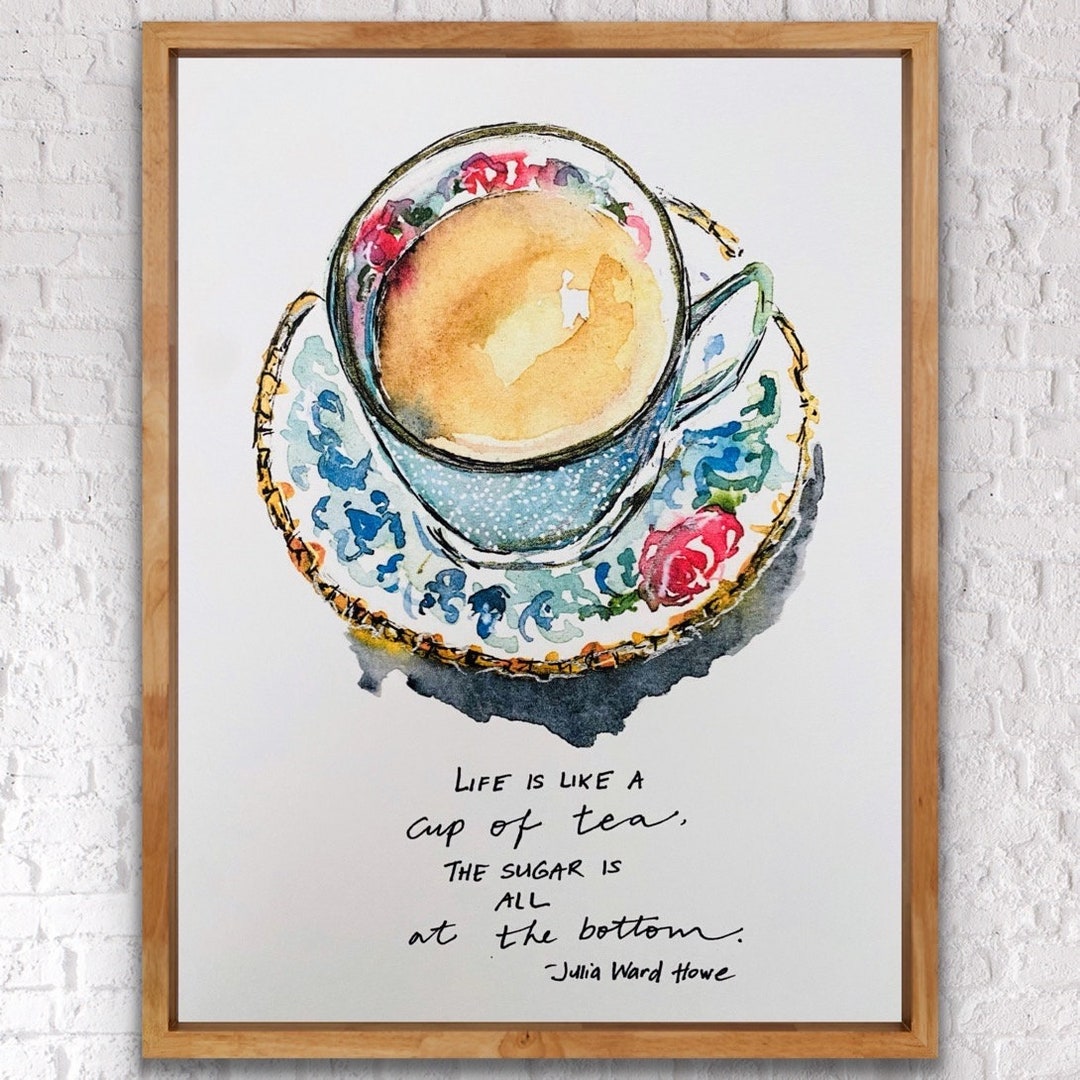 LIFE IS LIKE A
cup of tea,
THE SUGAR IS
ALL
at the bottom.
-Julia Ward Howe